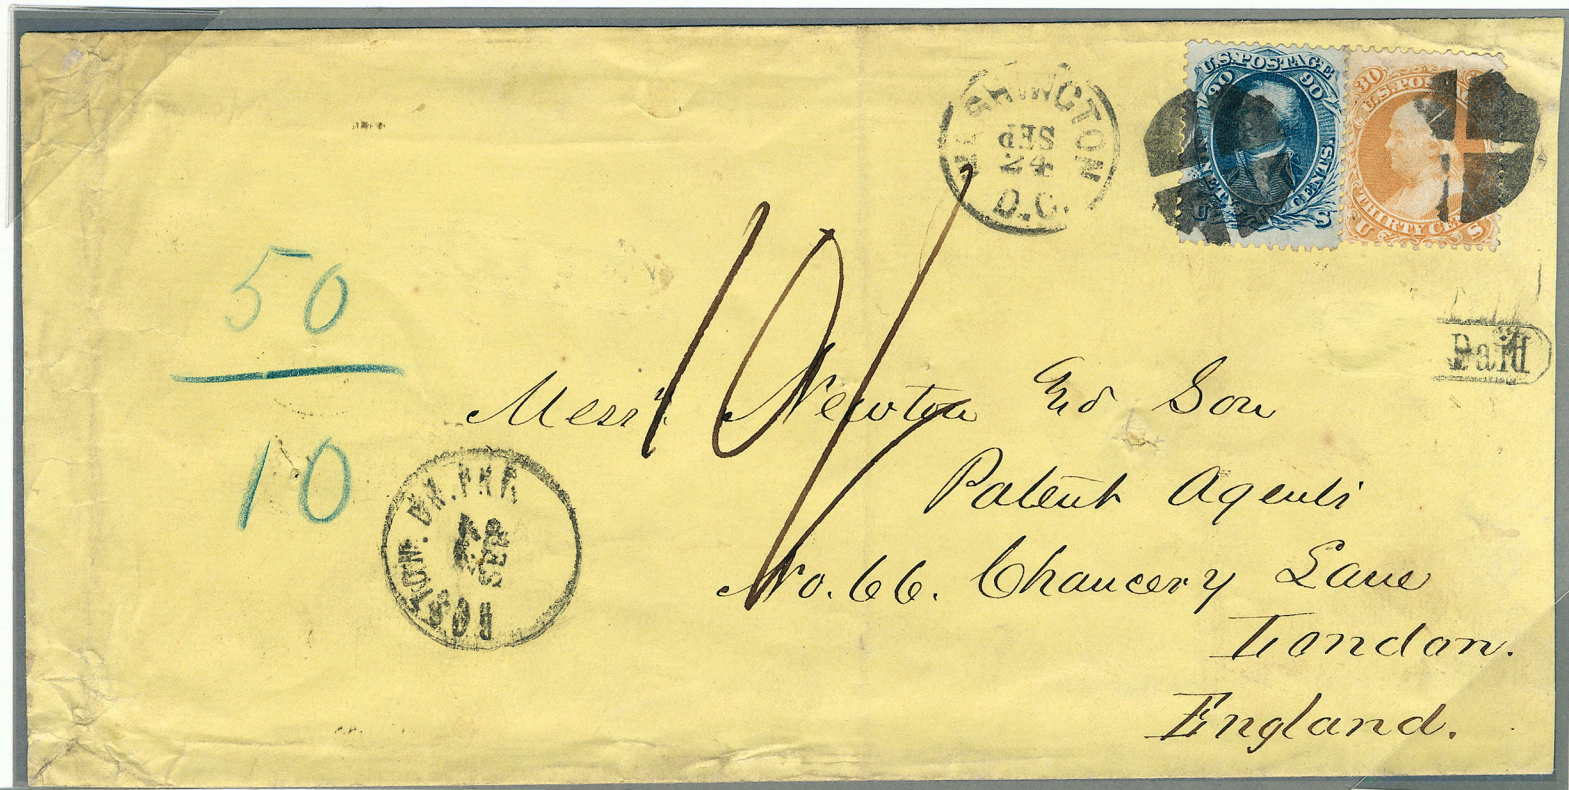 WASHINGTON
SEP
24
D.C.
U.S. POSTAGE
90 90
NINETY CENTS.
U S
30
U.S. POSTAGE
THIRTY CENTS
U S
Paid
50
10
Messrs. Newton And Son
Patent Agents
No. 66. Chancery Lane
London.
England.
BOSTON. BR. PKT.
SEP